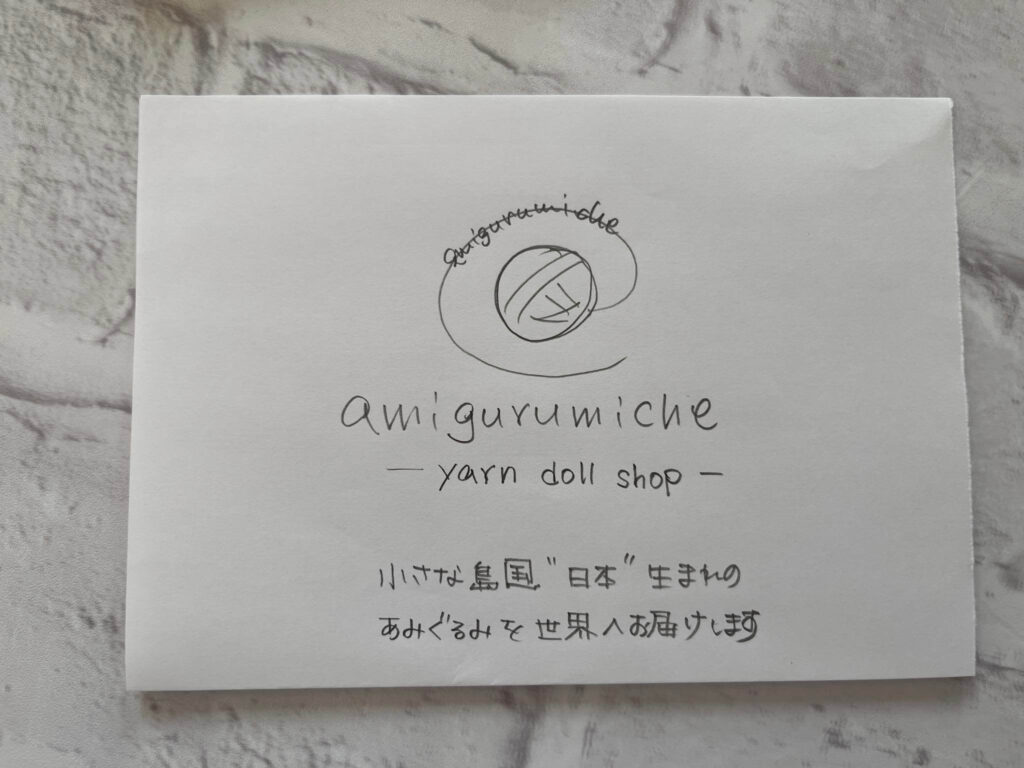 amigurumiche
amigurumiche
— yarn doll shop —
小さな島国"日本"生まれの
あみぐるみを世界へお届けします